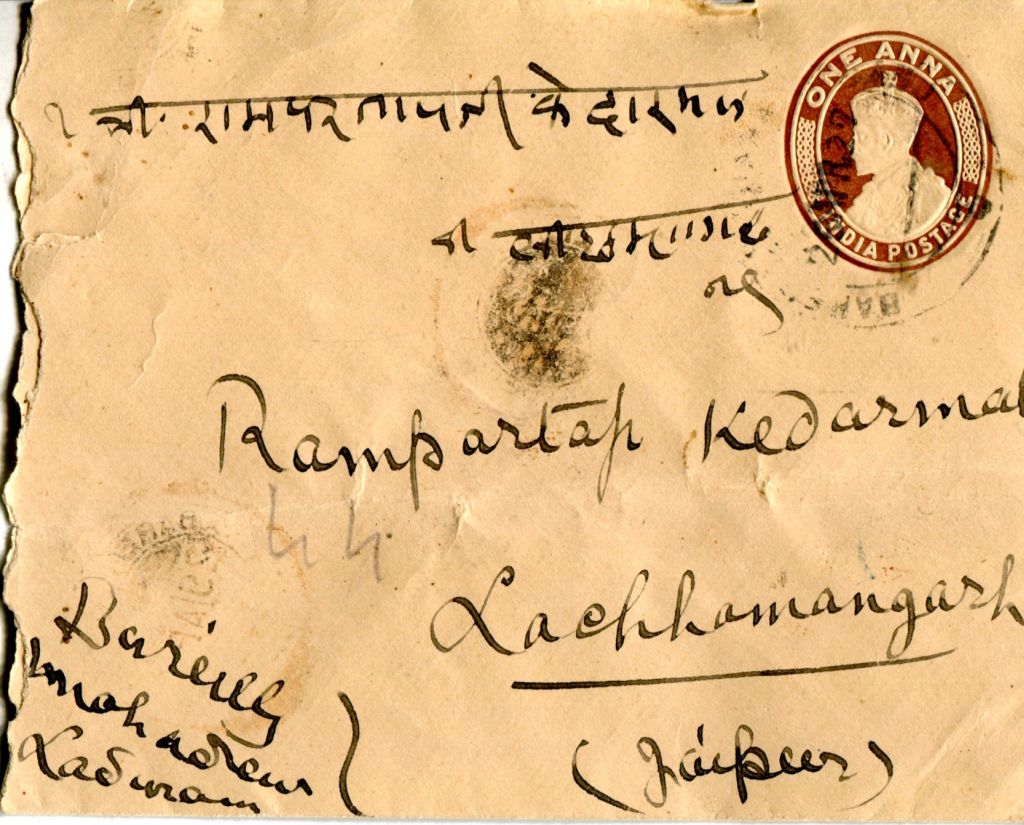 ONE ANNA
INDIA POSTAGE
श्री रामपरतापजी केदारमल
Rampartap Kedarmal
44
Lachhamangarh
(Jaipur)
Bareilly
Mahadeo
Laduram